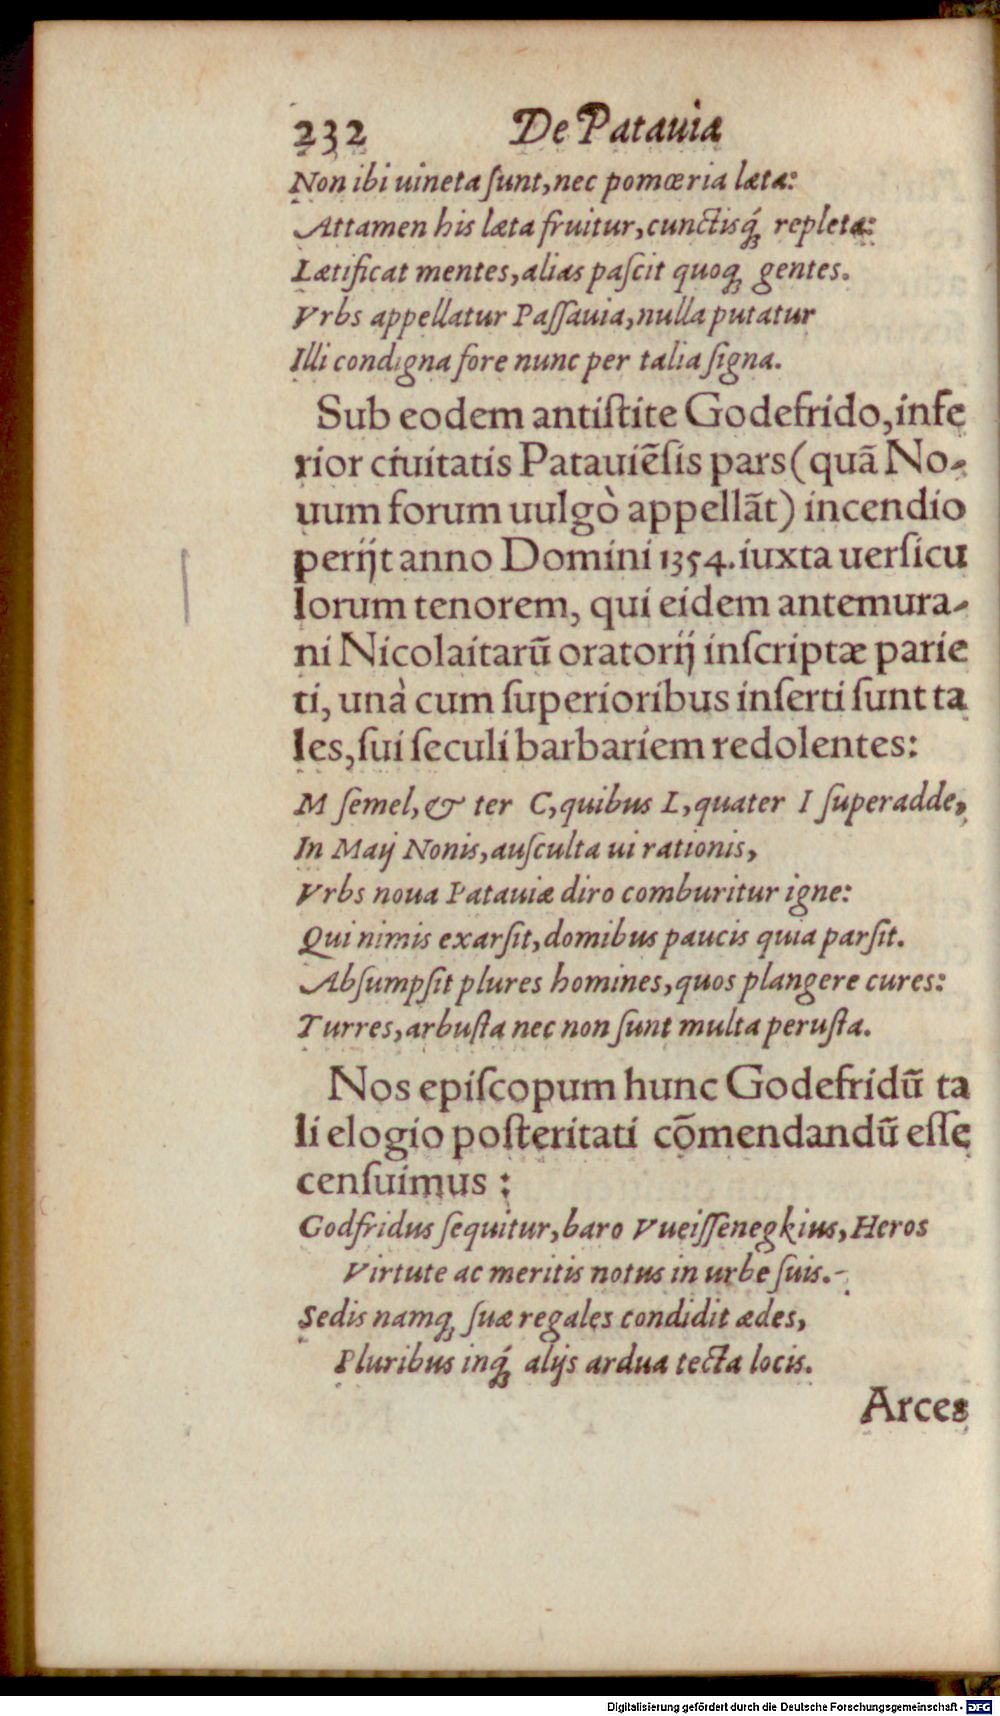 232 De Patauia
Non ibi uineta ſunt, nec pomœria læta:
Attamen his læta fruitur, cunctisq́ꝫ repleta:
Lætificat mentes, alias paſcit quoqꝫ gentes.
Vrbs appellatur Paſſauia, nulla putatur
Illi condigna fore nunc per talia ſigna.
Sub eodem antiſtite Godefrido, infe
rior ciuitatis Patauiẽſis pars (quã No-
uum forum uulgò appellãt) incendio
perijt anno Domini 1354. iuxta uerſicu
lorum tenorem, qui eidem antemura-
ni Nicolaitarũ oratorij inſcriptæ parie
ti, unà cum ſuperioribus inſerti ſunt ta
les, ſui ſeculi barbariem redolentes:
M ſemel, & ter C, quibus L, quater I ſuperadde,
In Maij Nonis, auſculta ui rationis,
Vrbs noua Patauiæ diro comburitur igne:
Qui nimis exarſit, domibus paucis quia parſit.
Abſumpſit plures homines, quos plangere cures:
Turres, arbuſta nec non ſunt multa peruſta.
Nos epiſcopum hunc Godefridũ ta
li elogio poſteritati cõmendandũ eſſe
cenſuimus:
Godfridus ſequitur, baro Vueiſſenegkius, Heros
Virtute ac meritis notus in urbe ſuis.-
Sedis namqꝫ ſuæ regales condidit ædes,
Pluribus inq́ꝫ alijs ardua tecta locis.
Arces
Digitalisierung gefördert durch die Deutsche Forschungsgemeinschaft - DFG